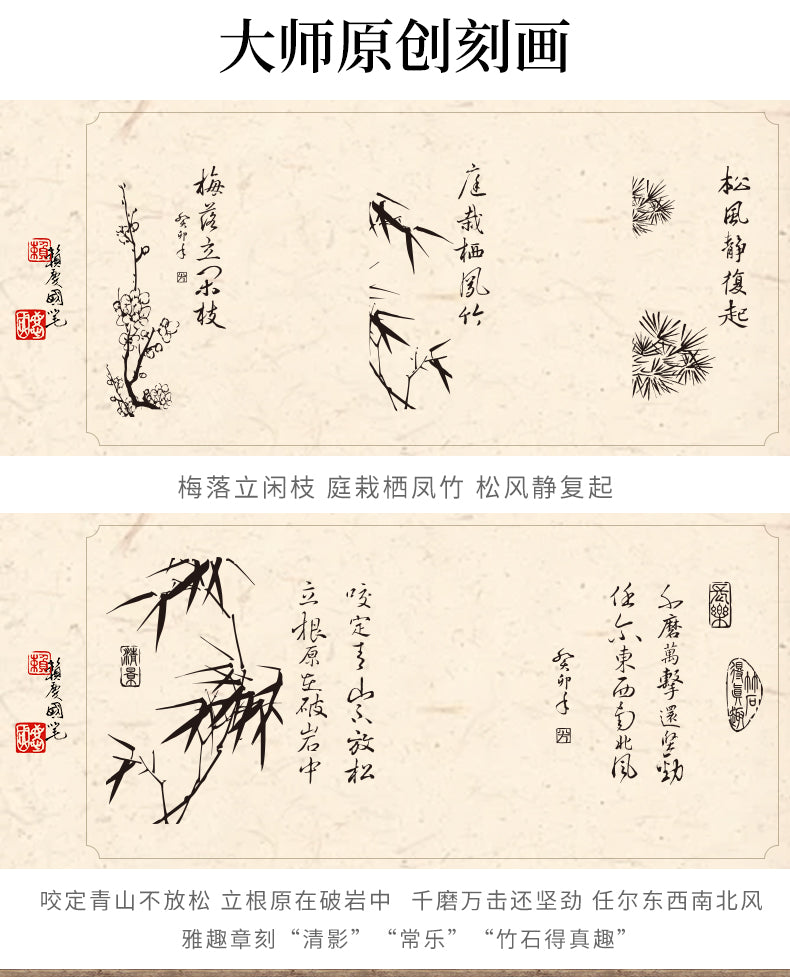 大师原创刻画
松風静復起
庭栽栖鳳竹
梅落立闲枝
癸卯年
賴慶國笔
賴
梅落立闲枝 庭栽栖凤竹 松风静复起
常樂
竹石得真趣
千磨萬擊還坚勁
任尔東西南北风
癸卯年
咬定青山不放松
立根原在破岩中
清景
賴慶國笔
賴
咬定青山不放松 立根原在破岩中 千磨万击还坚劲 任尔东西南北风
雅趣章刻“清影” “常乐” “竹石得真趣”